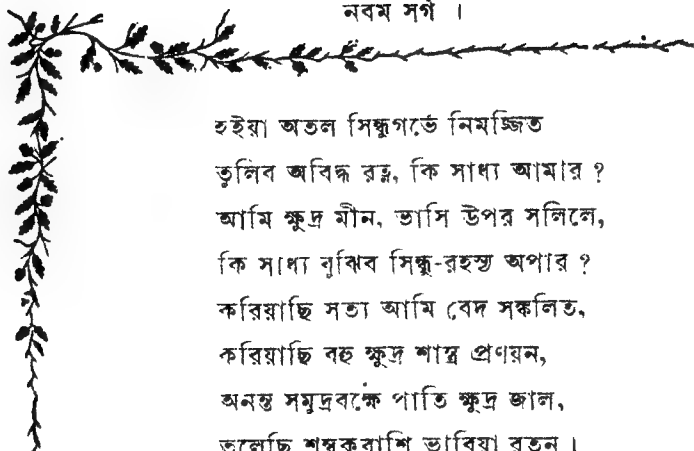 নবম সর্গ ।
হইয়া অতল সিন্ধুগর্ভে নিমজ্জিত
তুলিব অবিদ্ধ রত্ন, কি সাধ্য আমার ?
আমি ক্ষুদ্র মীন, ভাসি উপর সলিলে,
কি সাধ্য বুঝিব সিন্ধু-রহস্য অপার ?
করিয়াছি সত্য আমি বেদ সঙ্কলিত,
করিয়াছি বহু ক্ষুদ্র শাস্ত্র প্রণয়ন,
অনন্ত সমুদ্রবক্ষে পাতি ক্ষুদ্র জাল,
তুলেছি শম্বুকরাশি ভাবিয়া রতন ।